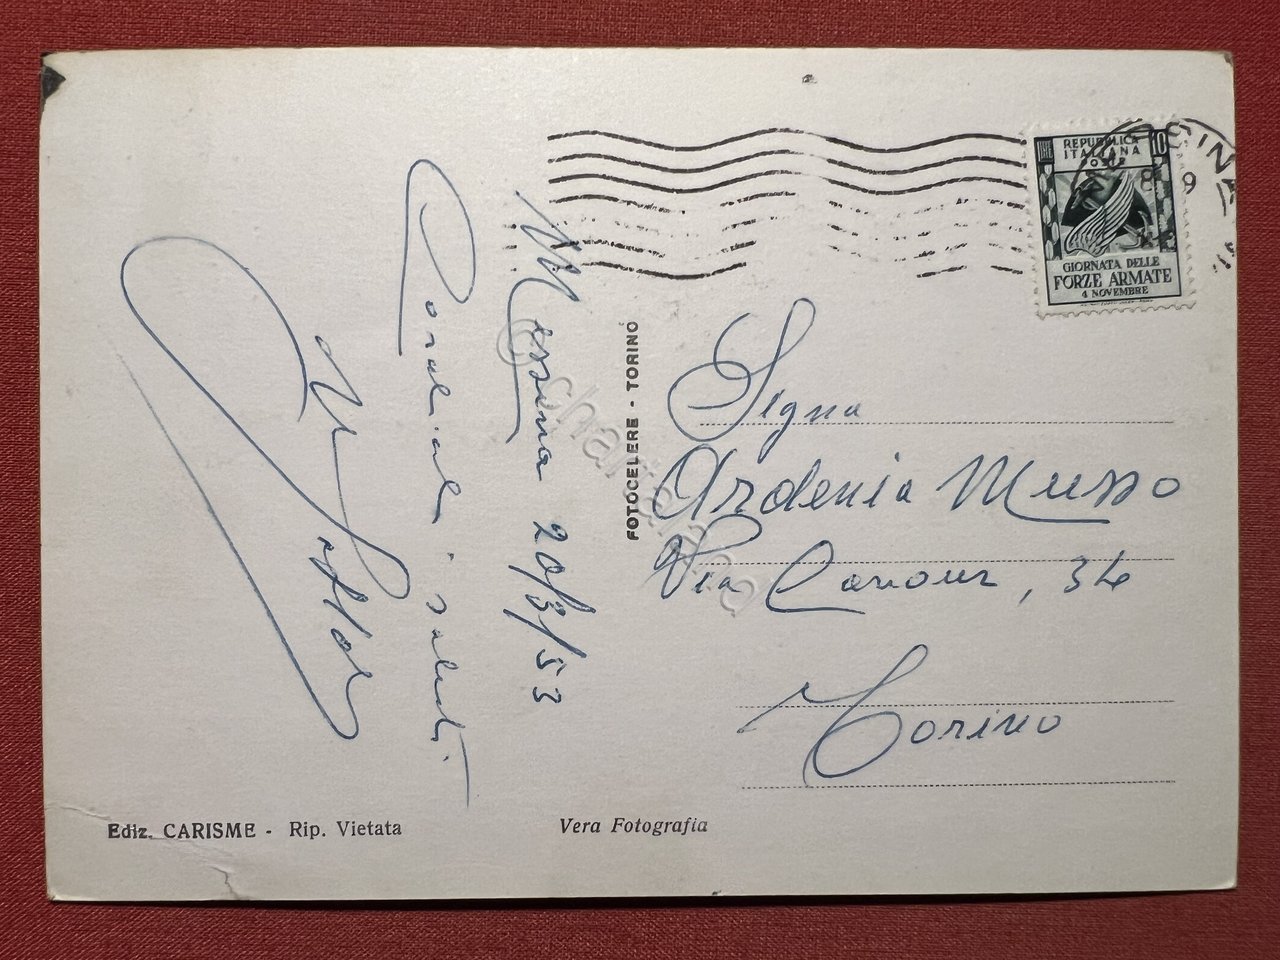 Messina 20/3/53
Cordiali saluti
FOTOCELERE - TORINO
REPUBBLICA
ITALIANA
LIRE 10
GIORNATA DELLE
FORZE ARMATE
4 NOVEMBRE
Sigra
Ardenia Musso
Via Cavour, 34
Torino
Ediz. CARISME - Rip. Vietata
Vera Fotografia
© chartapa